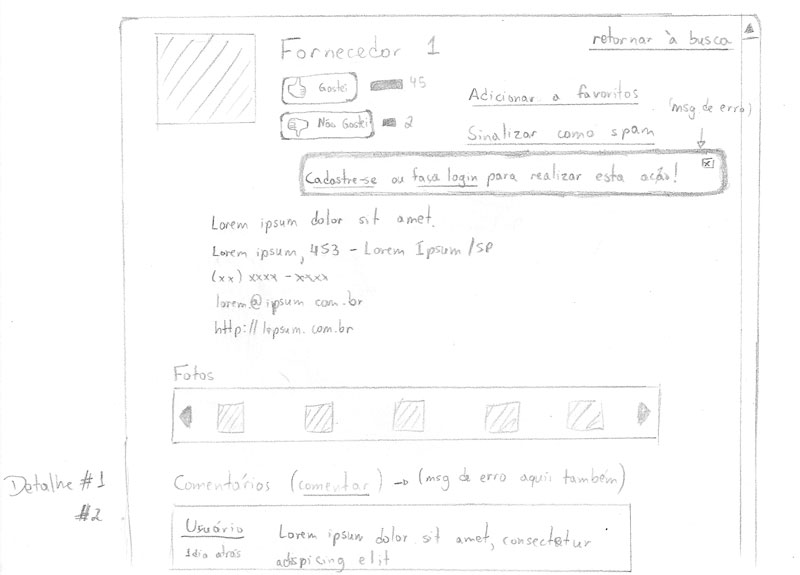 retornar à busca
Fornecedor 1
Gostei 45
Não Gostei 2
Adicionar a favoritos
(msg de erro)
Sinalizar como spam
x
Cadastre-se ou faça login para realizar esta ação!
Lorem ipsum dolor sit amet.
Lorem ipsum, 453 - Lorem Ipsum/SP
(xx) xxxx-xxxx
lorem@ipsum.com.br
http://lipsum.com.br
Fotos
Detalhe #1
#2
Comentários (comentar) → (msg de erro aqui também)
Usuário
1 dia atrás
Lorem ipsum dolor sit amet, consectetur
adipscing elit